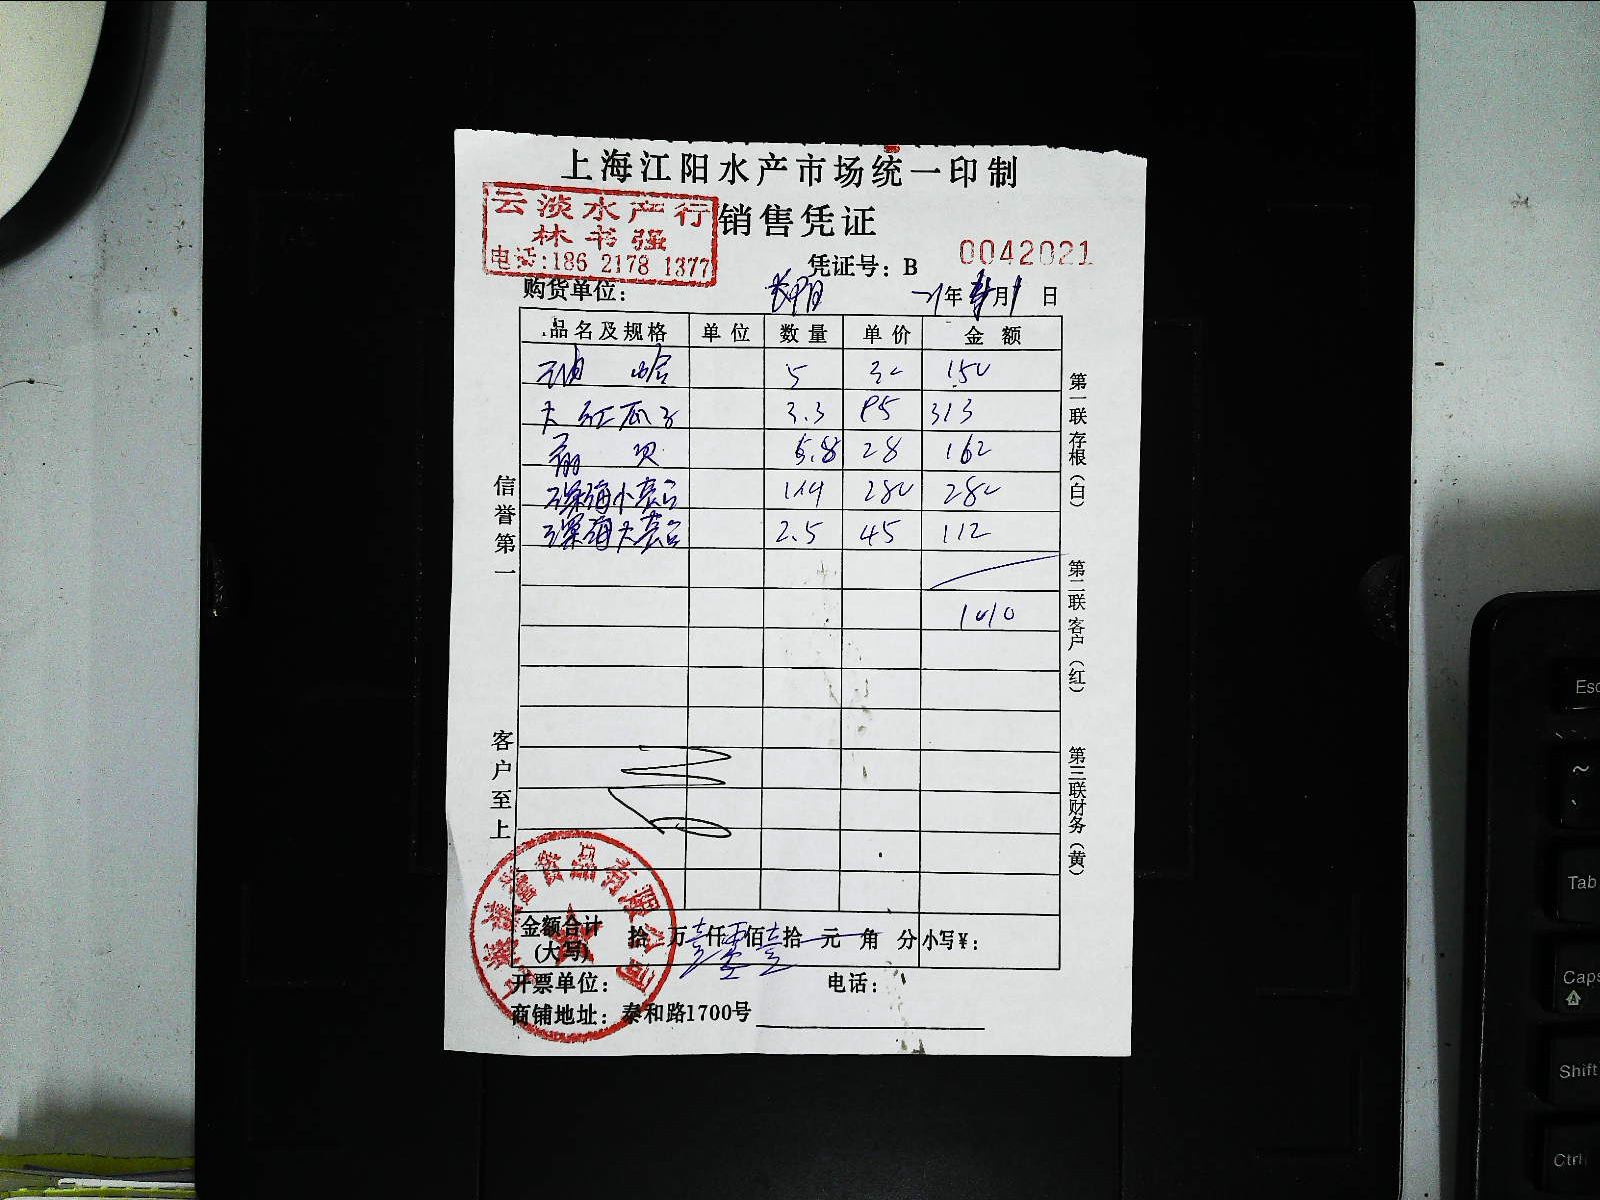 上海江阳水产市场统一印制
云淡水产行
林书强
电话:186 2178 1377
销售凭证
凭证号：B 0042021
购货单位：
年 月 1 日
品名及规格 单位 数量 单价 金额
油 哈 5 30 150
大红瓜子 3.3 95 313
扇贝 5.8 28 162
深海小 280 280
深海大 2.5 45 112
1010
信誉第一
客户至上
第一联 存根（白）
第二联 客户（红）
第三联 财务（黄）
金额合计（大写） 拾 万 壹仟 零佰 壹拾 元 角 分 小写￥：
开票单位： 电话：
商铺地址：泰和路1700号
食品有限公司